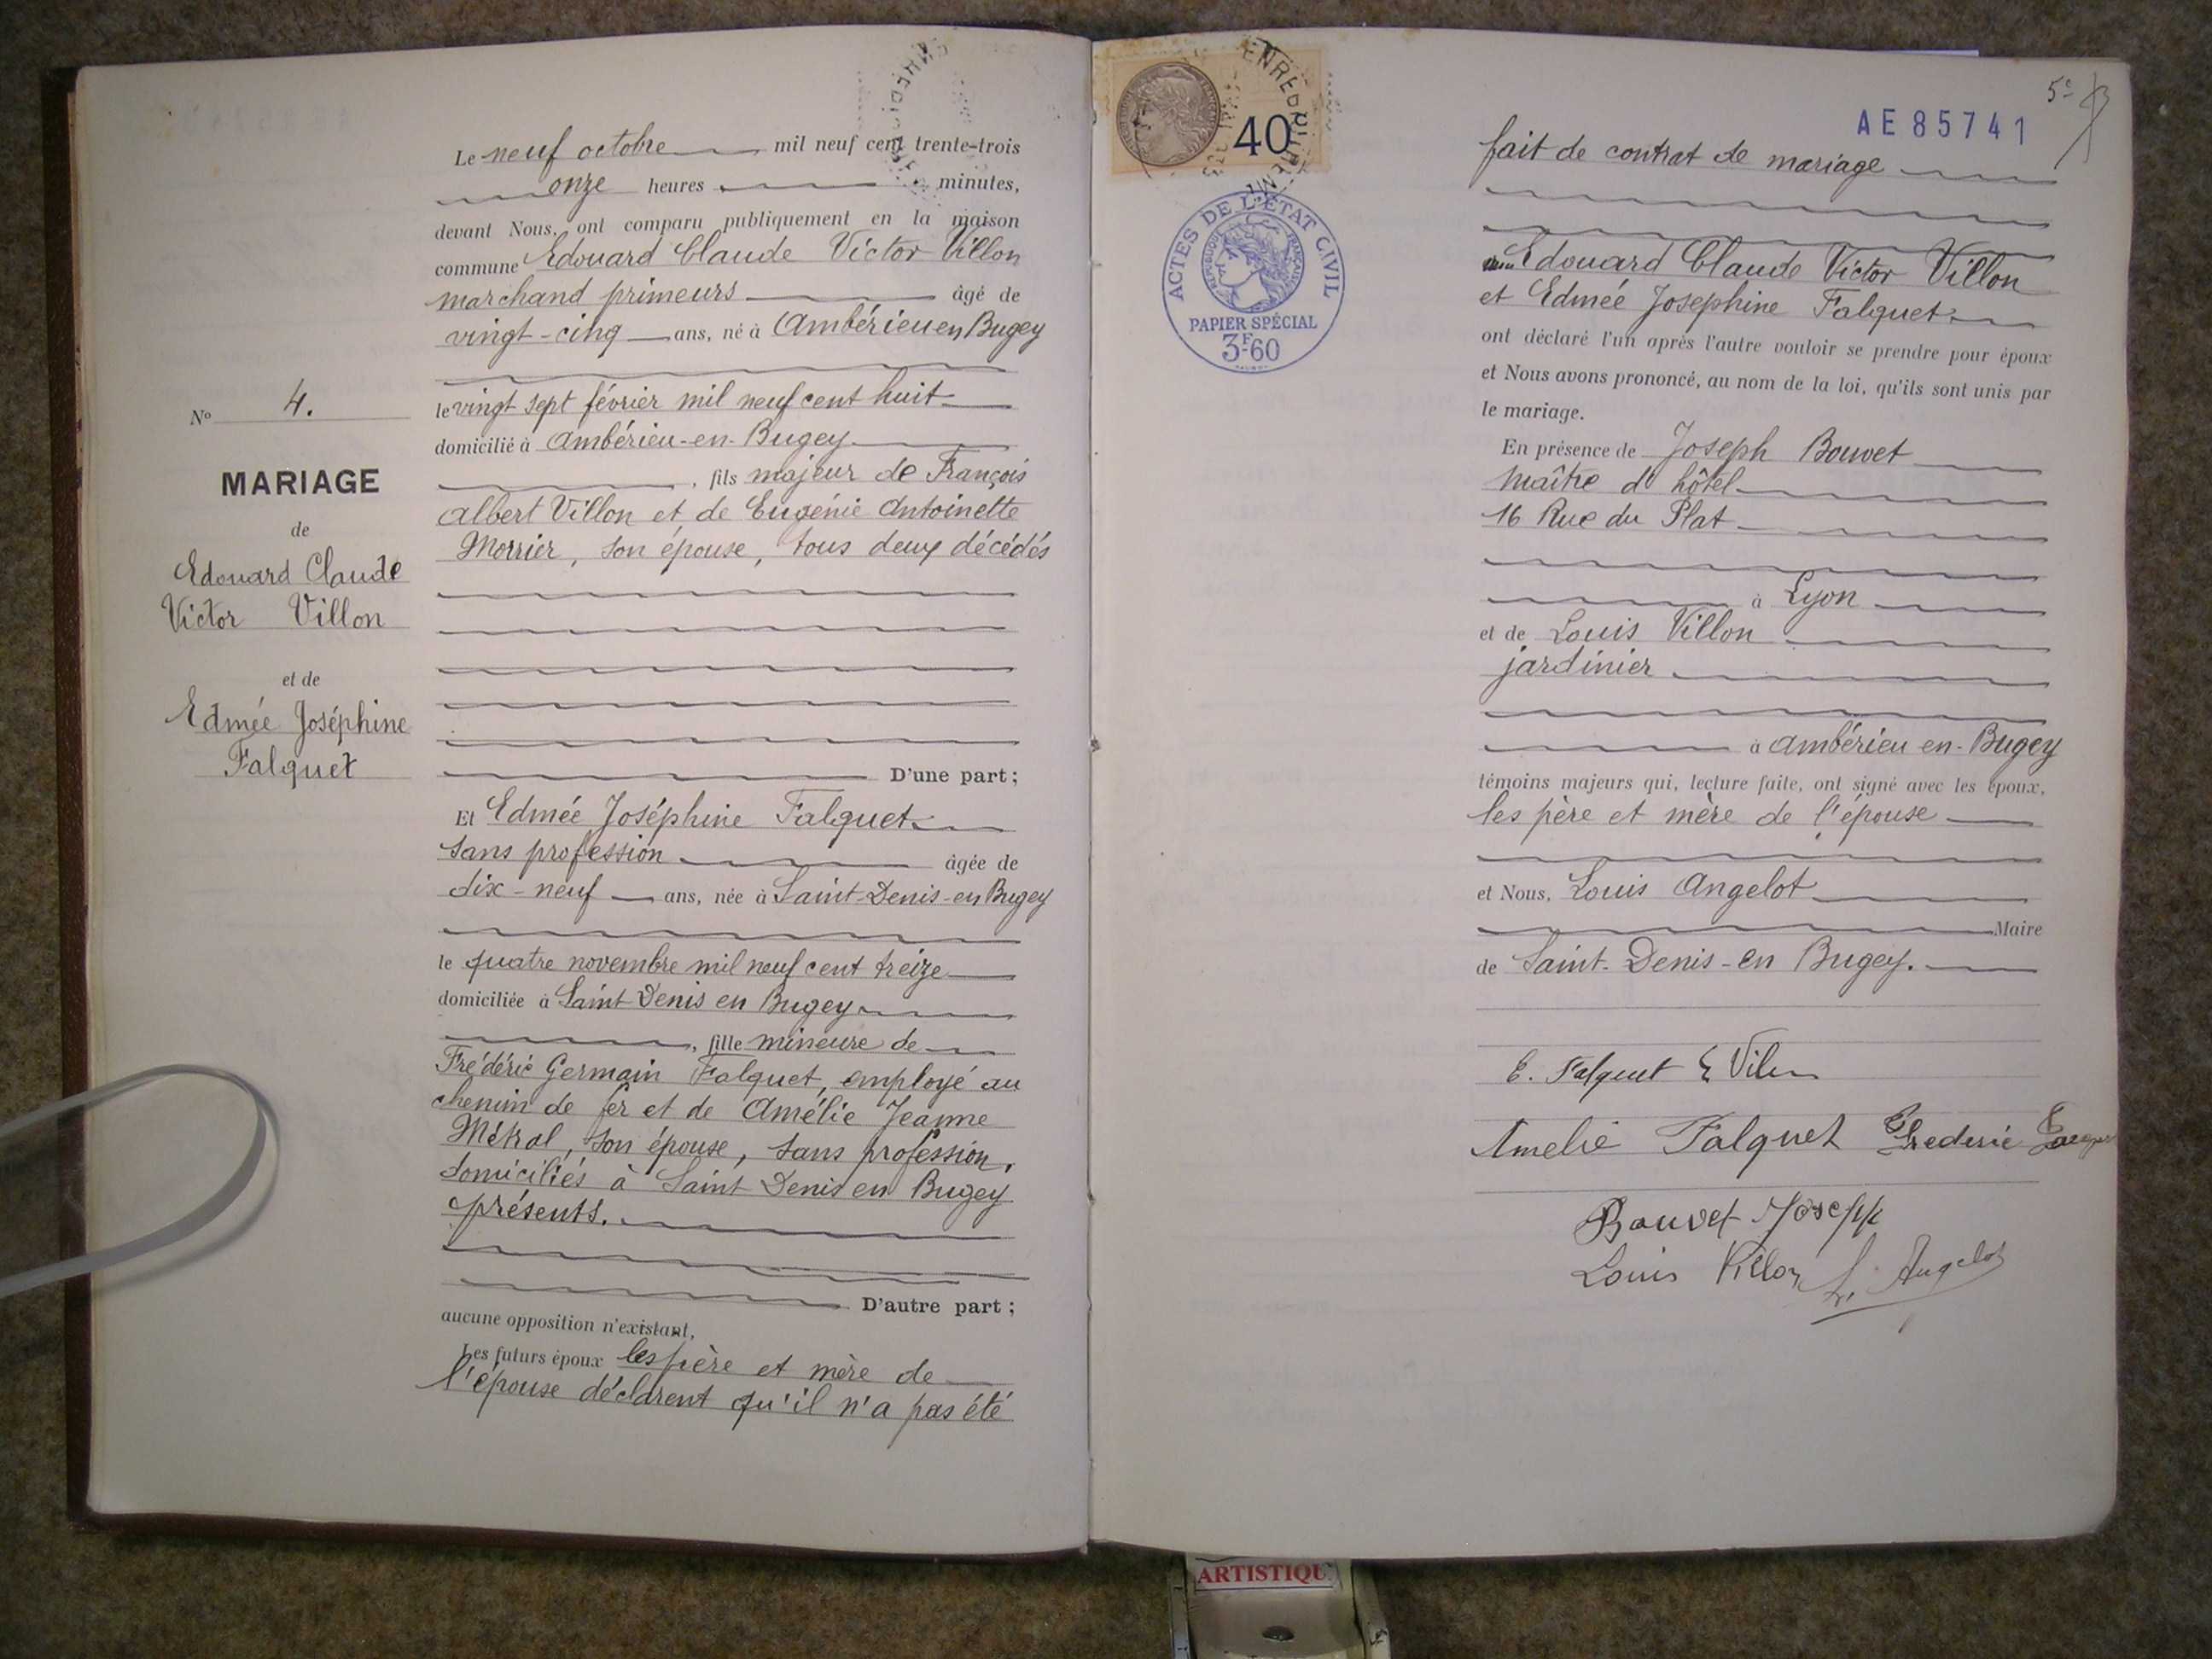 Le neuf octobre mil neuf cent trente-trois
onze heures minutes,
devant Nous, ont comparu publiquement en la maison
commune Edouard Claude Victor Villon
marchand primeurs âgé de
vingt-cinq ans, né à Ambérieu en Bugey
le vingt sept février mil neuf cent huit
domicilié à Ambérieu-en-Bugey
, fils majeur de François
Albert Villon et de Eugénie Antoinette
Morrier, son épouse, tous deux décédés
D'une part;
Et Edmée Joséphine Falquet
sans profession âgée de
dix-neuf ans, née à Saint-Denis-en Bugey
le quatre novembre mil neuf cent treize
domiciliée à Saint Denis en Bugey
, fille mineure de
Frédéric Germain Falquet, employé au
chemin de fer et de Amélie Jeanne
Métral, son épouse, sans profession,
domiciliés à Saint Denis en Bugey
présents.
D'autre part;
aucune opposition n'existant,
Les futurs époux les père et mère de
l'épouse déclarent qu'il n'a pas été
No 4.
MARIAGE
de
Edouard Claude
Victor Villon
et de
Edmée Joséphine
Falquet
40
ACTES DE L'ÉTAT CIVIL
RÉPUBLIQUE FRANÇAISE
PAPIER SPÉCIAL
3F60
5e
AE 85741
fait de contrat de mariage
Edouard Claude Victor Villon
et Edmée Josephine Falquet
ont déclaré l'un après l'autre vouloir se prendre pour époux
et Nous avons prononcé, au nom de la loi, qu'ils sont unis par
le mariage.
En présence de Joseph Bouvet
maître d'hôtel
16 Rue du Plat
à Lyon
et de Louis Villon
jardinier
à Ambérieu en-Bugey
témoins majeurs qui, lecture faite, ont signé avec les époux,
les père et mère de l'épouse
et Nous, Louis Angelot
Maire
de Saint-Denis-en Bugey.
E. Falquet E Villon
Amelie Falquet Frederic Falquet
Bouvet Joseph
Louis Villon L. Angelot
ARTISTIQU